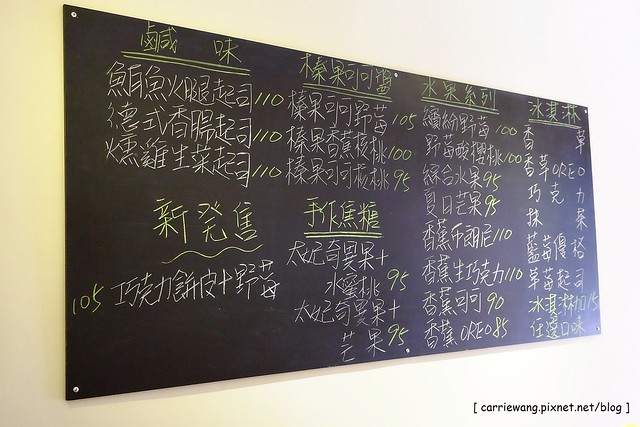 鹹 味
鮪魚火腿起司110
德式香腸起司110
燻雞生菜起司110
新発售
105 巧克力餅皮+野莓
榛果可可醬
榛果可可野莓105
榛果香蕉核桃100
榛果可可核桃95
手作焦糖
太妃奇異果+
水蜜桃95
太妃奇異果+
芒果95
水果系列
繽紛野莓100
野莓酸櫻桃100
綜合水果95
夏日芒果95
香蕉布朗尼110
香蕉生巧克力110
香蕉可可90
香蕉OREO85
冰淇淋
香 草
香草OREO
巧克力
抹 茶
藍莓優格
草莓起司
冰淇淋加15
任選口味
[ carriewang.pixnet.net/blog ]